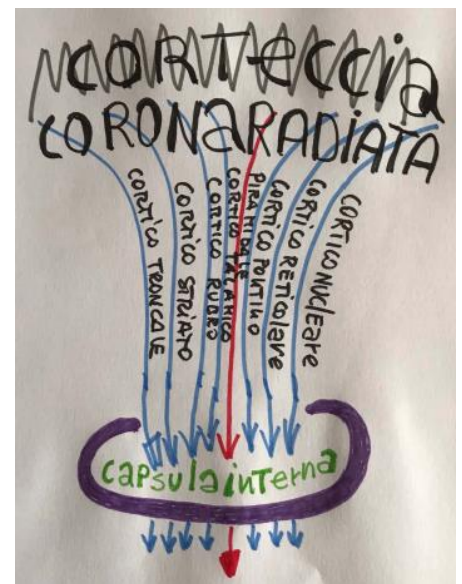 CORTECCIA
CORONA RADIATA
CORTICO TRONCALE
CORTICO STRIATO
CORTICO RUBRO
CORTICO TALAMICO
PIRAMIDALE
CORTICO PONTINO
CORTICO RETICOLARE
CORTICO NUCLEARE
capsula inTerna